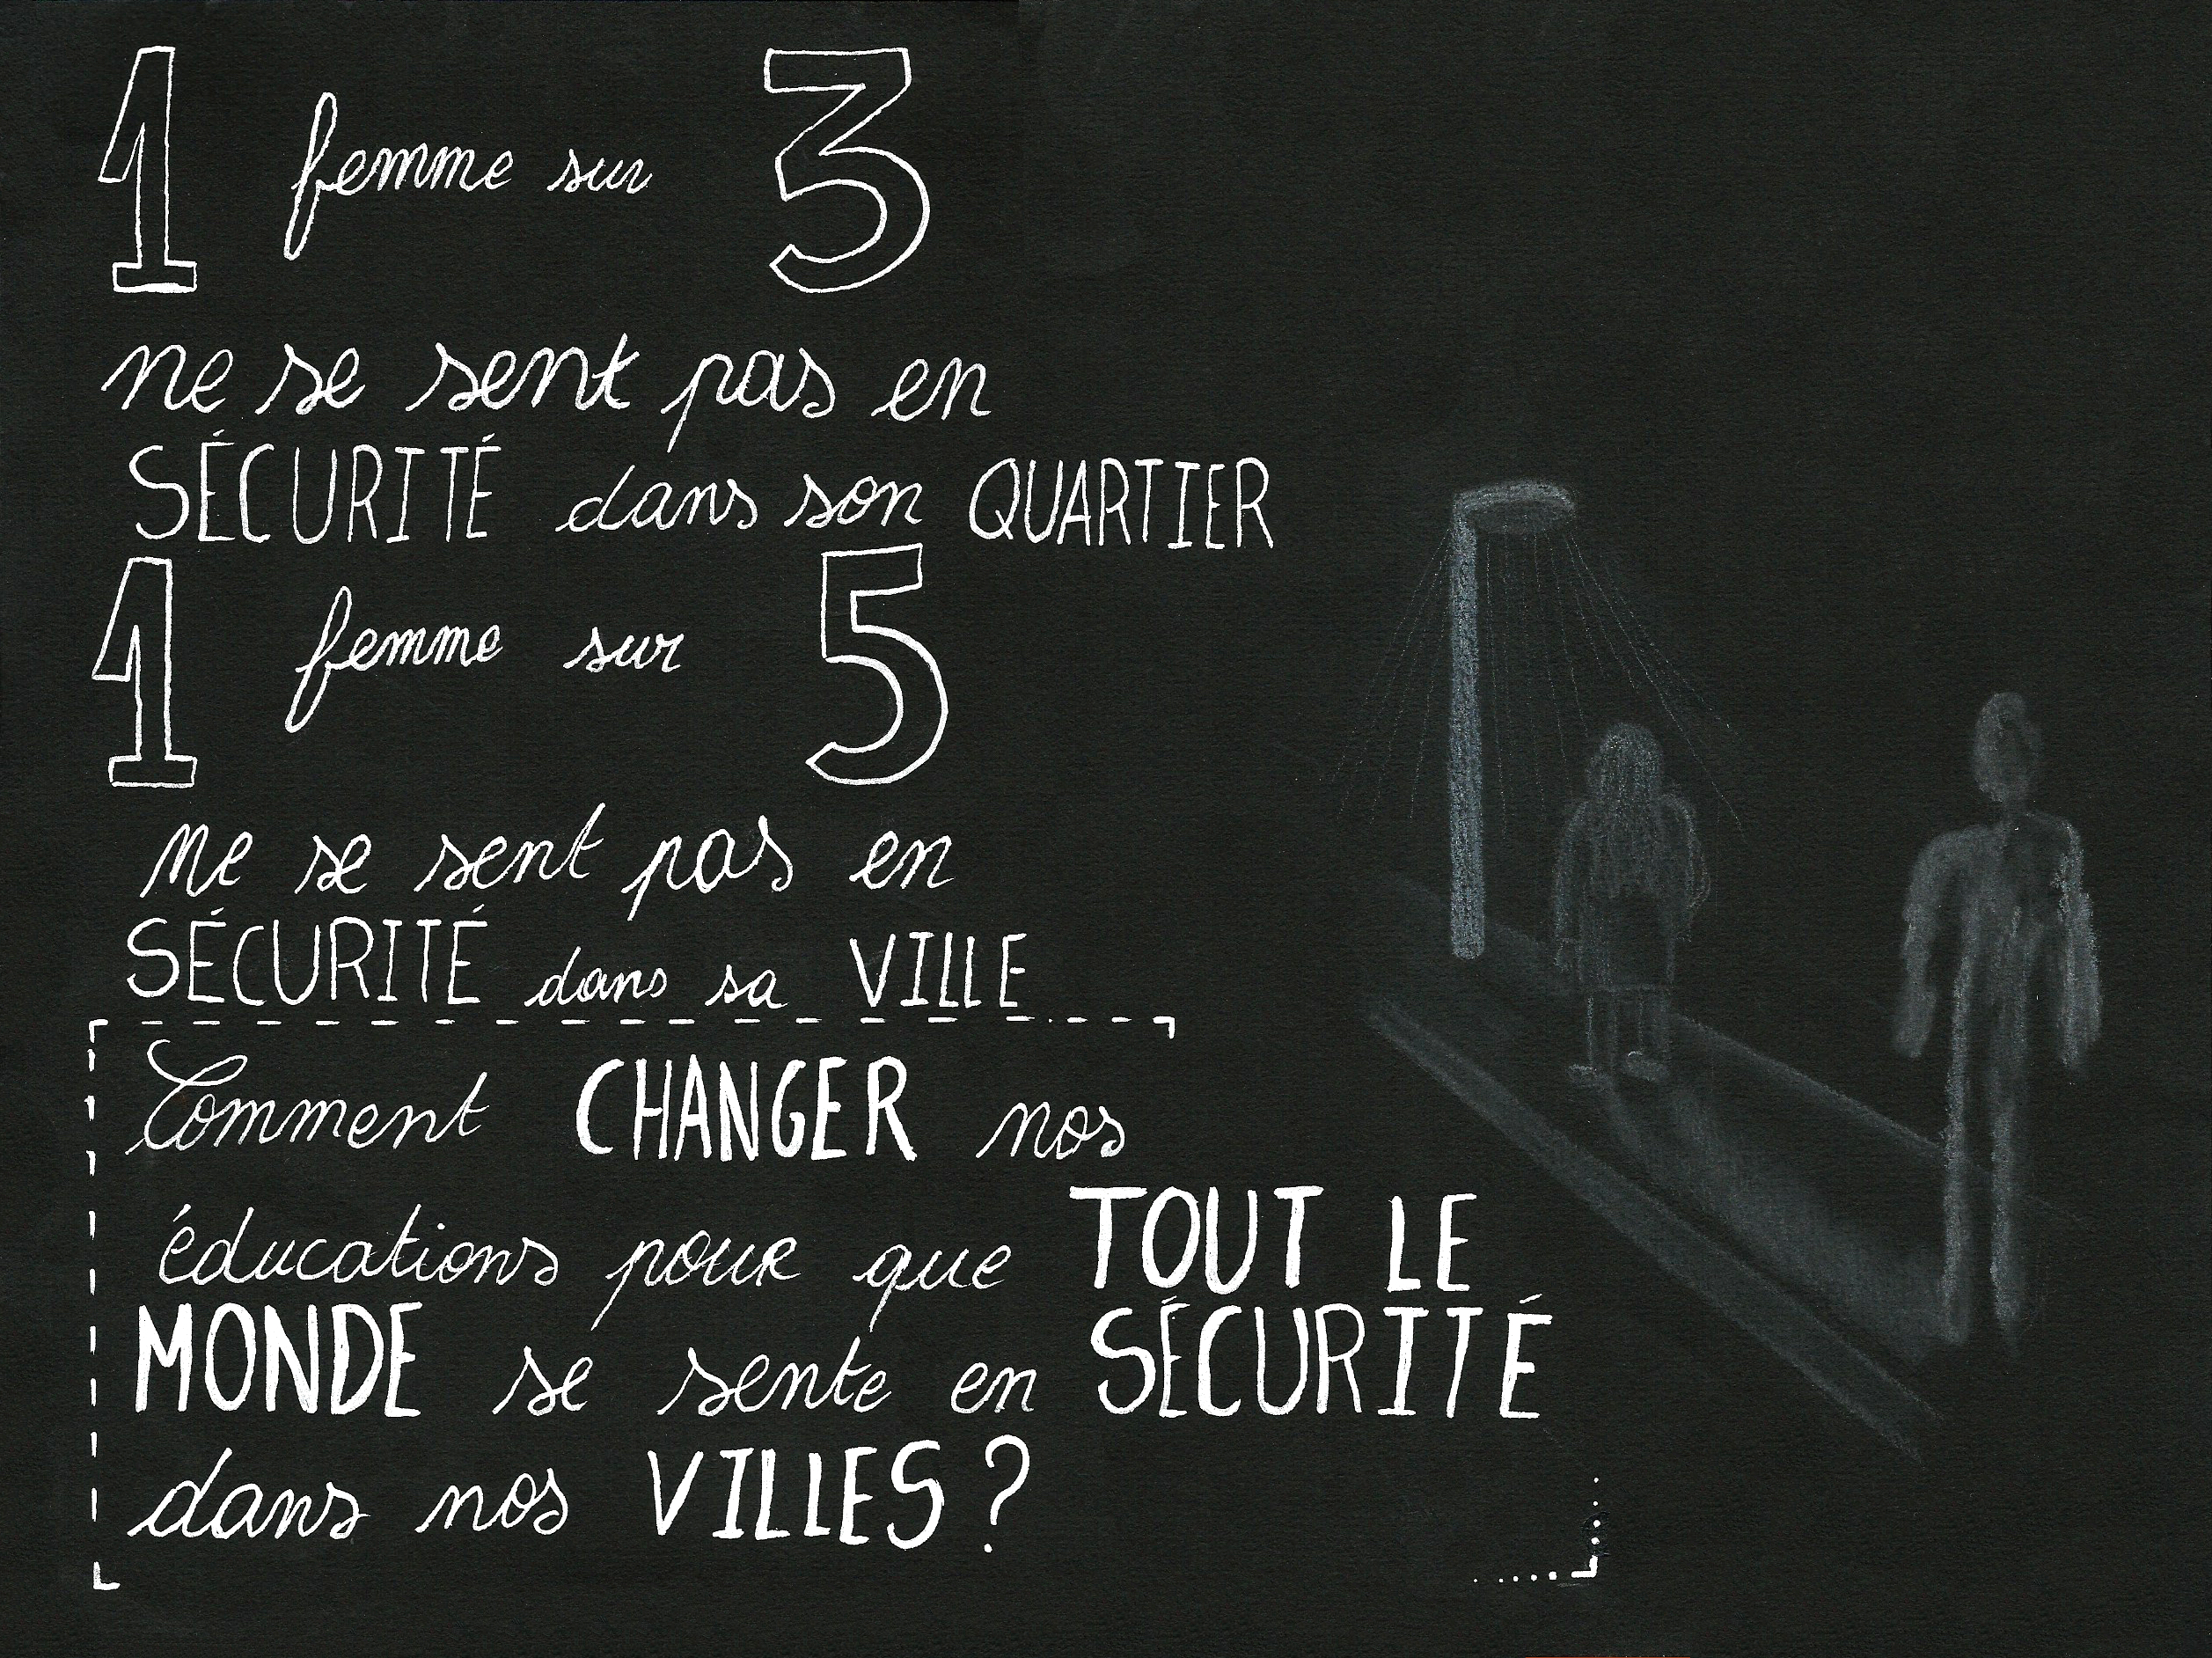 1 femme sur 3
ne se sent pas en
SÉCURITÉ dans son QUARTIER
1 femme sur 5
ne se sent pas en
SÉCURITÉ dans sa VILLE
Comment CHANGER nos
éducations pour que TOUT LE
MONDE se sente en SÉCURITÉ
dans nos VILLES ?